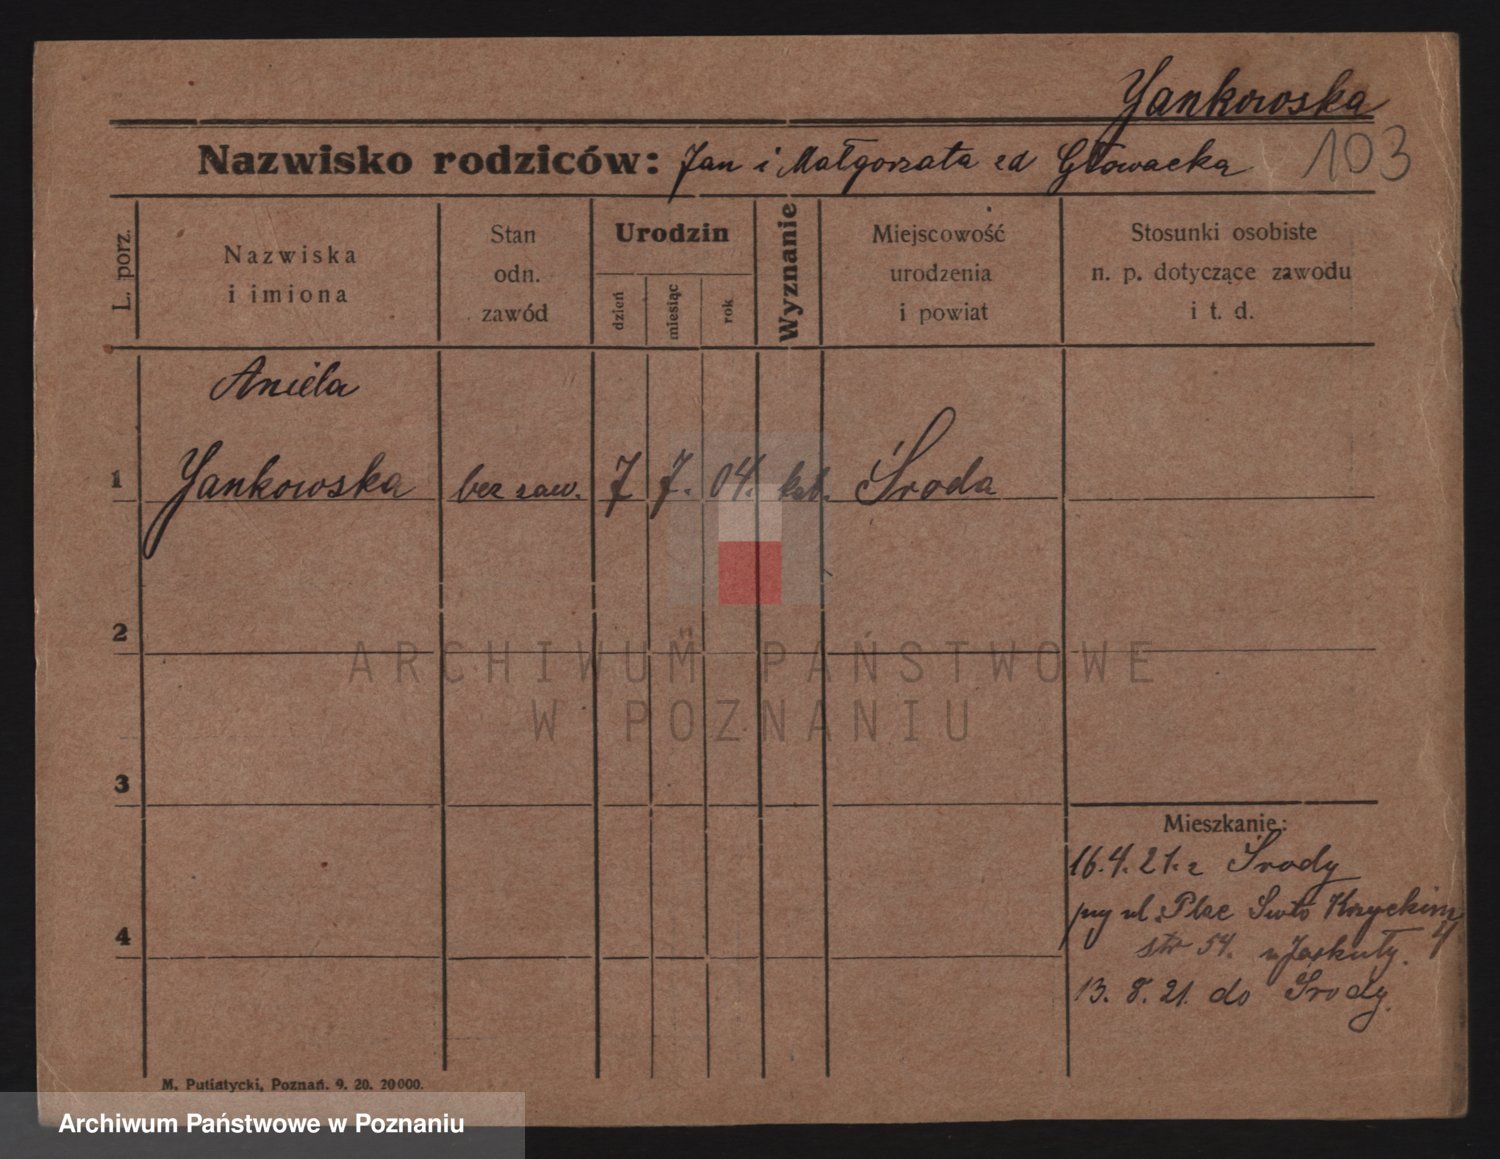 Yankowska
Nazwisko rodziców: Jan i Małgorzata zd Głowacka 103
L. porz.
Nazwiska
i imiona
Stan
odn.
zawód
Urodzin
dzień
miesiąc
rok
Wyznanie
Miejscowość
urodzenia
i powiat
Stosunki osobiste
n. p. dotyczące zawodu
i t. d.
Aniela
1 Yankowska bez zaw. 7 7. 04. kat. Środa
2
ARCHIWUM PAŃSTWOWE
W POZNANIU
3
Mieszkanie:
16.4.21. z Środy
ul. Plac
4
str 54.
13. 8. 21. do Środy.
M. Putiatycki, Poznań. 9. 20. 20000.
Archiwum Państwowe w Poznaniu